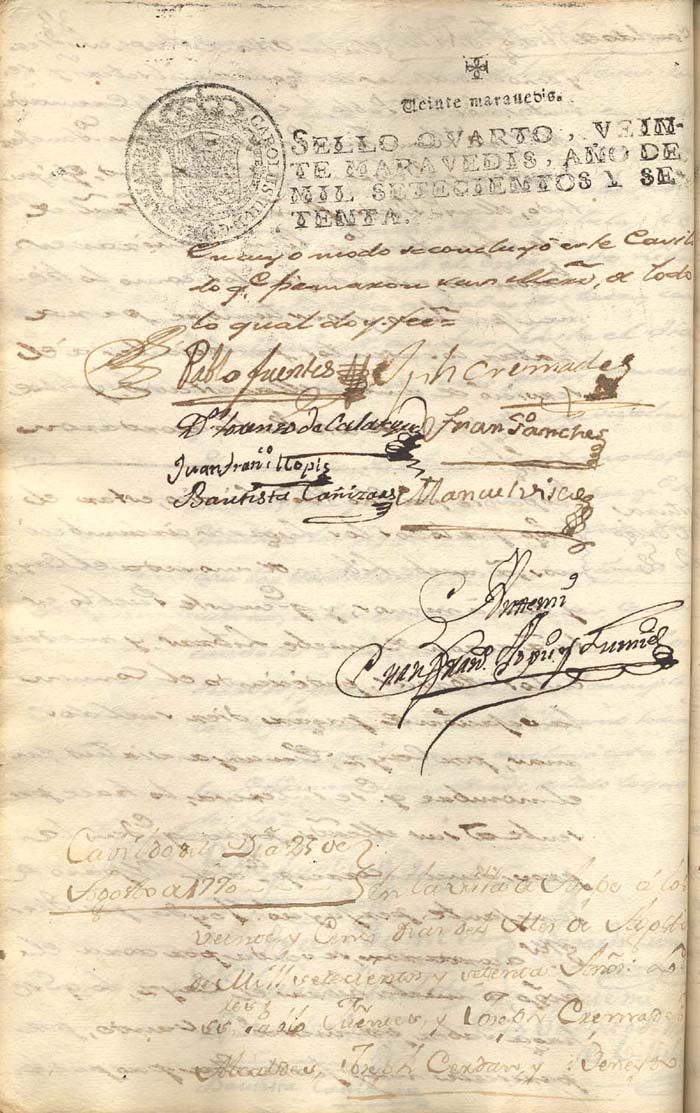 Veinte maravedis.
SELLO QVARTO, VEIN-
TE MARAVEDIS, AÑO DE
MIL SETECIENTOS Y SE-
TENTA.
CAROLUS III D. G.
En cuyo modo se concluyó este Cavil
do q.e firmaron sus Mers.
lo qual doy fee=
Pablo fuentes Jph Cremades
Dr. Lorenzo de Calatayud Fran.co Sanches
Juan Fran.co Llopis
Bautista Cañizares Manuel
Antemi
Juan
Cavildo del Dia 25 de
Agosto de 1770 En la villa de Aspe á los
veinte y Cinco dias del Mes de Agosto
de Mill setecientos y setenta Años: Los
SS. res Pablo Fuentes, y Joseph Cremades
Alcaldes, Joseph Cerdan, y